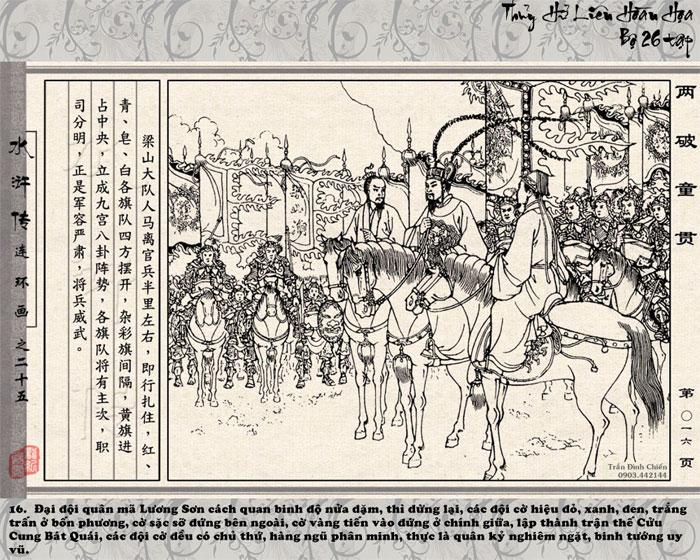 Thủy Hử Liên Hoàn Họa
Bộ 26 tập
两破童贯
第〇一六页
梁山大队人马离官兵半里左右，即行扎住，红、
青、皂、白各旗队四方摆开，杂彩旗间隔，黄旗进
占中央，立成九宫八卦阵势，各旗队将有主次，职
司分明，正是军容严肃，将兵威武。
水浒传连环画之二十五
Trần Đình Chiến
0903.442144
16. Đại đội quân mã Lương Sơn cách quan binh độ nửa dặm, thì dừng lại, các đội cờ hiệu đỏ, xanh, đen, trắng
trấn ở bốn phương, cờ sặc sỡ đứng bên ngoài, cờ vàng tiến vào đứng ở chính giữa, lập thành trận thế Cửu
Cung Bát Quái, các đội cờ đều có chủ thứ, hàng ngũ phân minh, thực là quân kỷ nghiêm ngặt, binh tướng uy
vũ.